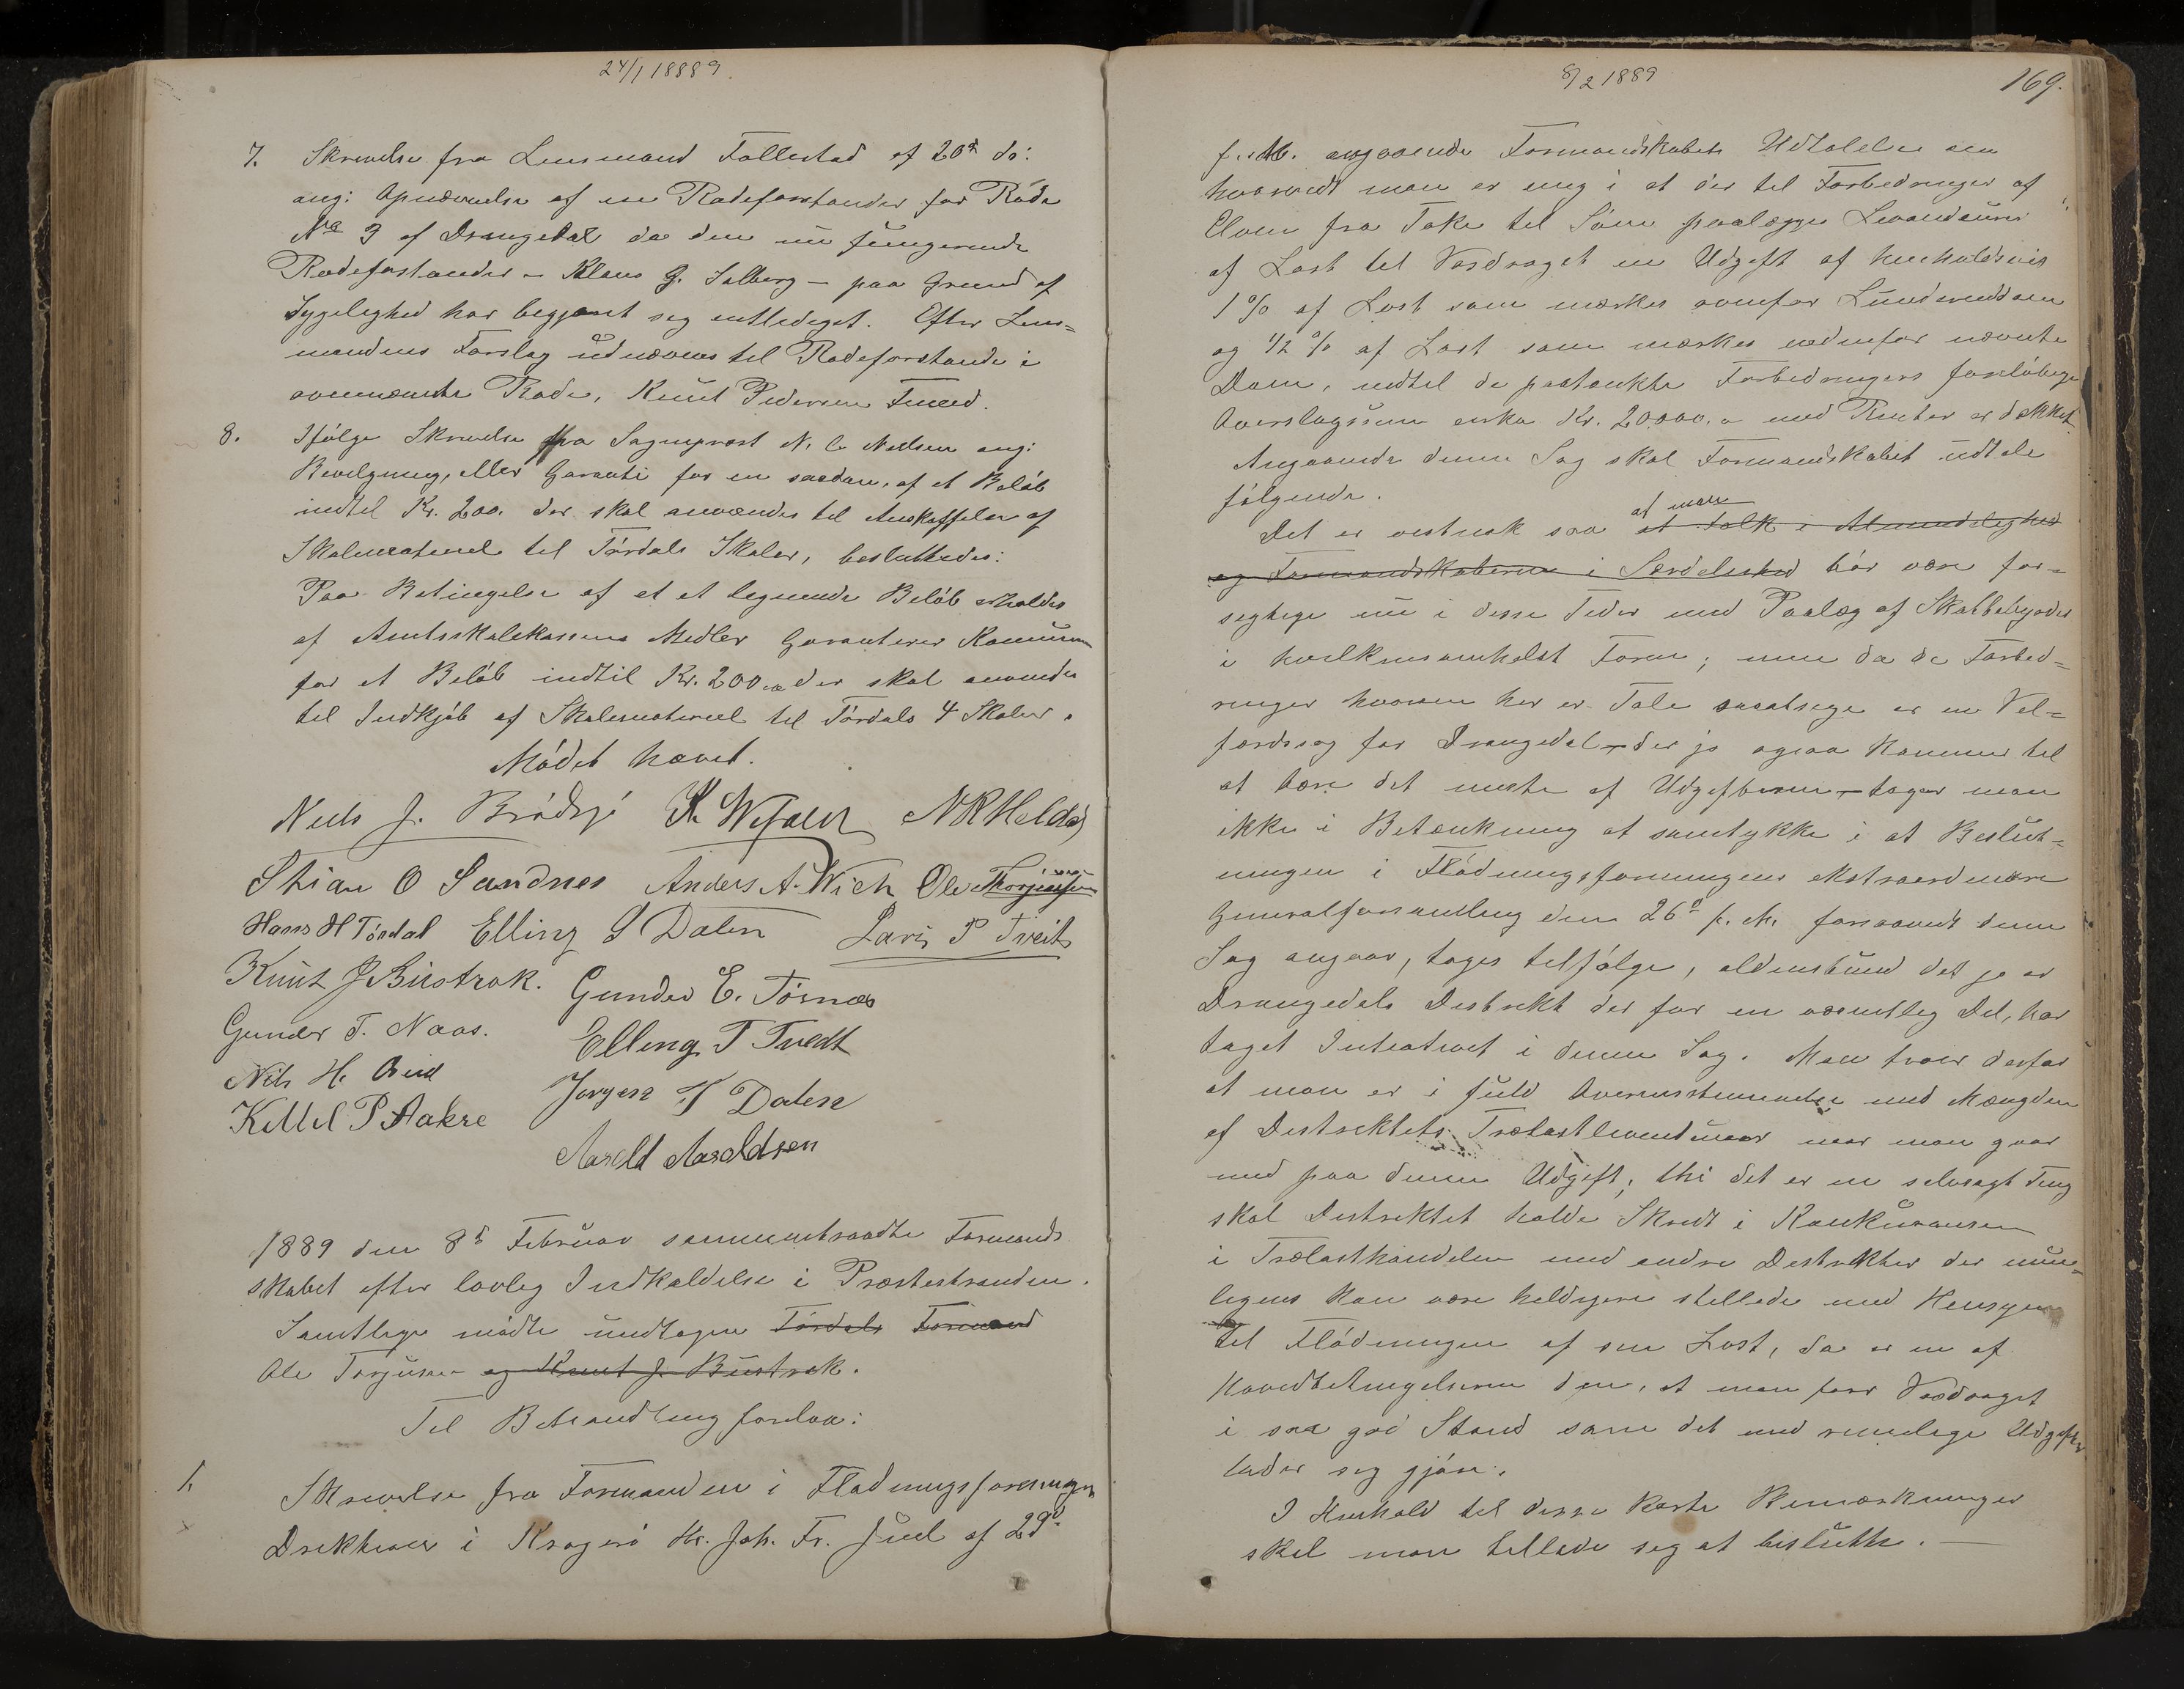 24/1 18889.
7. Skrivelse fra Lensmand Tollestad af 20d ds:
ang: Opnævnelse af en Rodeforstander for Rode
No 3 af Drangedal da den nu fungerende
Rodeforstander – Klaus G. Solberg – paa Grund af
Sygelighed har begjæret sig entlediget. Efter Lens=
mandens Forslag udnævnes til Rodeforstander i
ovennævnte Rode, Knut Pedersen Tveed.
8. Ifølge Skrivelse fra Sogneprest N. C. Nielsen ang:
Bevilgning, eller Garanti for en saadan, af et Beløb
indtil Kr. 200. der skal anvendes til Anskaffelse af
Skolemateriel til Tørdals Skoler, besluttedes:
Paa Betingelse af at et lignende Beløb erholdes
af Amtsskolekassens Midler Garanterer Kommunen
for et Beløb indtil Kr. 200 der skal anvendes
til Indkjøb af Skolemateriel til Tørdals 4 Skoler.
Mødet hævet.
Niels J. Brødsjø NRHelda
Stian O Sandnes Anders A. Wich Ole Thorjussen
Hans H Tørdal Elling S Dalen Lars P Tveit
Knut J Bustrak. Gunder E. Tørnes
Gunder T. Naas. Elling T Tvedt
Nils H.
Kittel P Aakre Jørgen T Dalen
Aasold Aasoldsen
1889 den 8d Februar sammentraadte Formand=
skabet efter lovlig Indkaldelse i Præstestranden.
Samtlige mødte undtagen Tørdals Formand
Ole Torjusen og Knut J. Bustrak.
Til Behandling forelaa:
1. Skrivelse fra Formanden i Flødningsforeningens
Direktion i Kragerø Hr. Joh. Fr. Juel af 29d
8/2 1889
169.
f. M. angaaende Formandskabets Udtalelse om
hvorvidt man er enig i at der til Forbedringer af
Elven fra Toke til Søen paalægges Leverandører
af Last til Vasdraget en Udgift af henholdsvis
1 % af Last som mærkes ovenfor Lundereiddam
og 1/2 % af Last som mærkes nedenfor nævnte
Dam, indtil de paatænkte Forbedringers foreløbige
Overslagssum cirka Kr. 20,000.00 med Renter er dækket.
Angaaende denne Sag skal Formandskabet udtale
følgende.
Det er vistnok saa at man at Folk i Almindelighed
og Formandskaberne i Særdeleshed bør være for=
sigtige nu i disse Tider med Paalæg af Skattebyrder
i hvilkensomhelst Form; men da de Forbed=
ringer hvorom her er Tale saaatsige er en Vel=
færdssag for Drangedal – der jo ogsaa kommer til
at bære det meste af Udgifterne – tager man
ikke i Betænkning at samtykke i at Beslut=
ningen i Flødningsforeningens ekstraordinære
Generalforsamling den 26d f. M. forsaavidt denne
Sag angaar, tages tilfølge, aldenstund det jo er
Drangedals Distrikt der for en væsentlig Del, har
taget Initiativet i denne Sag. Man troer derfor
at man er i fuld Overensstemmelse med Mængden
af Distriktets Trælastleverandører naar man gaar
med paa denne Udgift; thi det er en selvsagt Ting
skal Distriktet holde Skridt i Konkurransen
i Trælasthandelen med andre Distrikter der mu=
ligens kan være heldigere stillede med Hensyn
til Flødningen af sin Last, da er en af
Hovedbetingelserne den, at man faar Vasdraget
i saa god Stand som det med rimelige Udgifter
lader sig gjøre.
I Henhold til disse korte Bemærkninger
skal man tillade sig at beslutte. —